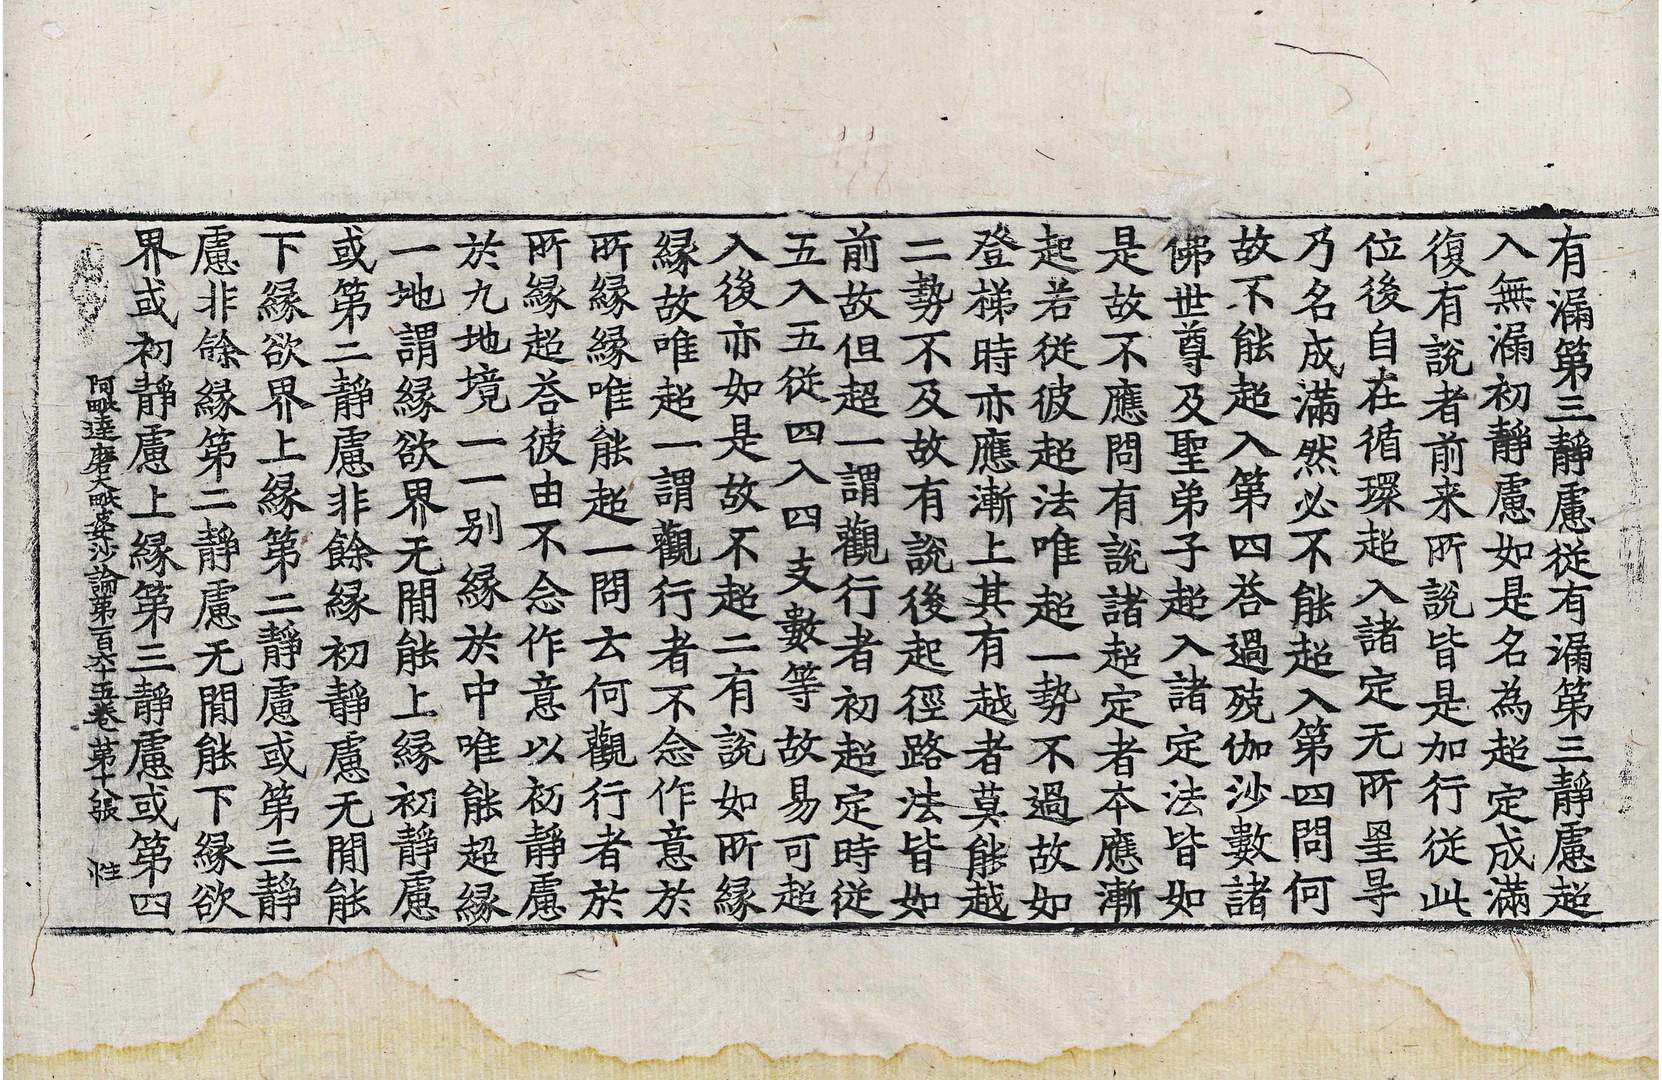 有漏第三靜慮從有漏第三靜慮超
入無漏初靜慮如是名為超定成滿
復有說者前来所說皆是加行從此
位後自在循環超入諸定无所罣㝵
乃名成滿然必不能超入第四問何
故不能超入第四荅過殑伽沙數諸
佛世尊及聖弟子超入諸定法皆如
是故不應問有說諸超定者本應漸
起若從彼超法唯超一勢不過故如
登梯時亦應漸上其有越者莫能越
二勢不及故有說後起徑路法皆如
前故但超一謂觀行者初超定時從
五入五從四入四支數等故易可超
入後亦如是故不超二有說如所緣
緣故唯超一謂觀行者不念作意於
所緣緣唯能超一問云何觀行者於
所緣超荅彼由不念作意以初靜慮
於九地境一一别緣於中唯能超緣
一地謂緣欲界无閒能上緣初靜慮
或第二靜慮非餘緣初靜慮无閒能
下緣欲界上緣第二靜慮或第三靜
慮非餘緣第二靜慮无閒能下緣欲
界或初靜慮上緣第三靜慮或第四
阿毗達磨大毗婆沙論第一百六十五卷 第十八張 性